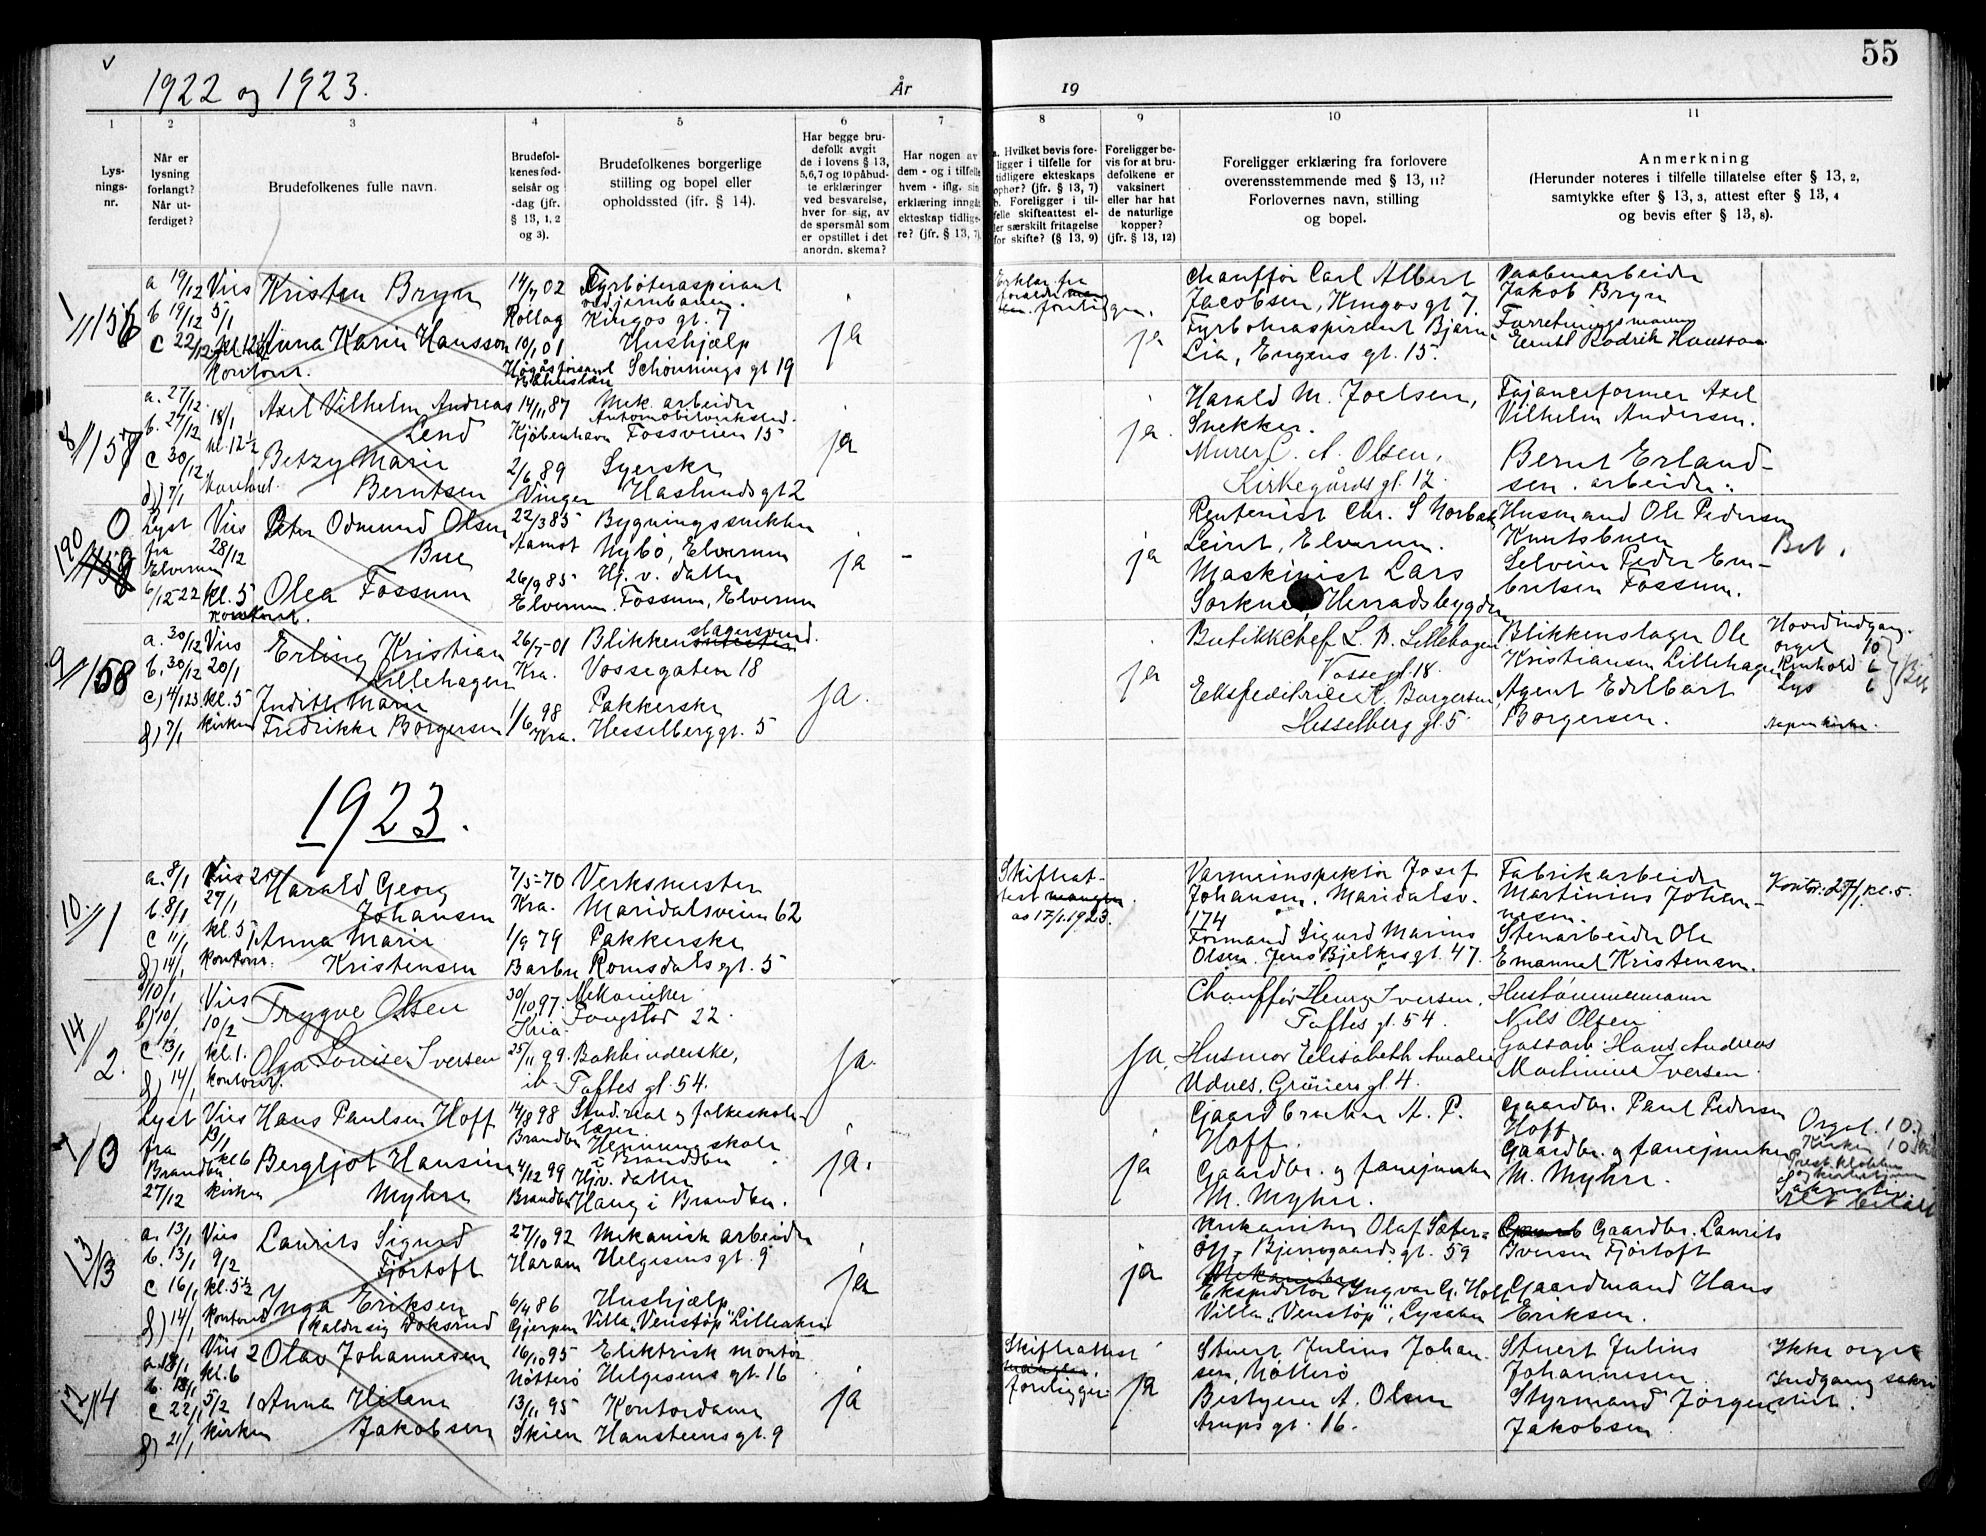 55
1922 og 1923.
År
19
1
2
3
4
5
6
7
8
9
10
11
Lys-
nings-
nr.
Når er
lysning
forlangt?
Når ut-
ferdiget?
Brudefolkenes fulle navn.
Brudefol-
kenes fød-
selsår og
-dag (jfr.
§ 13, 1, 2
og 3).
Brudefolkenes borgerlige
stilling og bopel eller
opholdssted (ifr. § 14).
Har begge bru-
defolk avgit
de i lovens § 13,
5, 6, 7 og 10 påbud-
te erklæringer
ved besvarelse,
hver for sig, av
de spørsmål som
er opstillet i det
anordn. skema?
Har nogen av
dem - og i tilfelle
hvem - iflg. sin
erklæring inngåt
ekteskap tidlige-
re? (jfr. § 13, 7)
a. Hvilket bevis fore-
ligger i tilfelle for
tidligere ekteskaps
ophør? (jfr. § 13, 7)
b. Foreligger i til-
felle skifteattest el-
ler særskilt fritagelse
for skifte? (§ 13, 9)
Foreligger be-
vis for at bru-
defolkene er
vaksinert
eller har hat
de naturlige
kopper?
(jfr. § 13, 12)
Foreligger erklæring fra forlovere
overensstemmende med § 13, 11?
Forlovernes navn, stilling
og bopel.
Anmerkning
(Herunder noteres i tilfelle tillatelse efter § 13, 2,
samtykke efter § 13, 3, attest efter § 13, 4
og bevis efter § 13, 8).
1//156
a 19/12
b 19/12
c 22/12
Viis
5/1
kontoret.
Kristen Bryn
Anna Karin Hansson
14/7 02
Rollag
10/1 01
Fyrbøteraspirant
ved jernbanen.
Kingos gt. 7
Hushjælp
Schønnings gt 19
ja
ja
Chauffør Carl Albert
Jacobsen, Kingos gt 7.
Fyrbøteraspirant Bjarne
Lia, Eugens gt. 15.
Vaabenarbeider
Jakob Bryn
Forretningsmann
8//157
a. 27/12.
b. 27/12
c 30/12
d) 7/1
18/1
kl. 12½
Kontoret.
Axel Vilhelm Andreas
Lend
Betzy Marie
Berntsen
14/11 87
Kjøbenhavn
2/6 89
Vinger
Mek. arbeider
Automobilverksted.
Fossveien 15
Syerske
Haslundsgt 2
ja
ja.
Harald M. Joelsen,
Snekker.
Murer C. A. Olsen,
Kirkegårds gt. 12.
Fajanceformer Axel
Vilhelm Andersen.
Bernt Erland-
sen. arbeider.
190
0
Lyst
fra
Elverum
6/12-22
Viis
28/12
kl. 5
kontoret.
Peter Odmund Olsen
Bue
Olea Fossum
22/3 85
Aamot
26/9 85
Elverum.
Bygningssnekker
Nybø, Elverum
Hj. v. datter
Fossum, Elverum
ja
-
ja
Rentenist Chr. S Norbæk
Leiret, Elverum.
Maskinist Lars
Herradsbygden
Husmand Ole Pedersen
Knutsbuen
Selveier Peder Em-
bretsen Fossum.
Bet.
9//158
a. 30/12
b. 30/12
c) 4/1 23
d) 7/1
Viis
20/1
kl. 5
kirken
Erling Kristian
Lillehagen
Judith Marie
Fredrikke Borgersen
26/7-01
Kra.
1/6 98
Kra.
Blikkenslagersvend.
Vossegaten 18
Pakkerske
Hesselberggt. 5
ja.
ja
Butikkchef L. B. Lillehagen
Vossegt. 18.
Borgersen,
Hesselberg gt. 5
Blikkenslager Ole
Kristiansen Lillehagen
Agent Edelbart
Borgersen.
Hovedindgang.
orgel 10
Renhold 6
Lys 6
Bet
1923.
10//1
a. 8/1
b. 8/1
c 11/1
d) 14/1
Viis
27/1
kl. 5
kontoret.
2
1
Harald Georg
Johansen
Anna Marie
Kristensen
7/5-70
Kra.
1/9 79
Barbu
Verksmester
Maridalsveien 62
Pakkerske
Romsdals gt. 5
Skifteat-
test mangler.
as 17/1. 1923.
Varmeinspektør Josef
Johansen, Maridalsv.
174
Formand Sigurd Marius
Olsen. Jens Bjelkesgt. 47.
Fabrikarbeider
Martinius Johan-
nesen.
Stenarbeider Ole
Emanuel Kristensen.
Kontor: 27/1 kl. 5.
14//2.
a) 10/1
b) 10/1
c. 13/1
d) 14/1
Viis
10/2
kl. 1.
kontoret.
Trygve Olsen
Olga Louise Iversen
30/10 97.
Kria.
25/11 99.
ib
Mekaniker
Fougstad 22.
Bokbinderske,
Toftes gt. 54.
ja.
ja,
Chauffør Henry Iversen,
Toftes gt. 54.
Husmor Elisabeth Amalie
Udnes, Grüners gt. 4.
Hustømmermann
Nils Olsen
Gassarb. Hans Andreas
Martinius Iversen
0
Lyst
fra
Brandbu
27/12
Viis
13/1
kl 6
kirken
Hans Paulsen Hoff
Bergljot Hansine
Myhre
14/8 98
Brandbu
4/12 99
Brandbu
Stud. real og folkeskole-
lærer
skole
i Brandbu
Hjv. datter
Haug i Brandbu.
ja.
ja
Gaardbruker A. P.
Hoff.
Gaardbr. og fanejunker
M. Myhre.
Gaardbr. Paul Pedersen
Hoff
Gaardbr. og fanejunker
M. Myhre.
Orgel. 10.
Kirken 10
13//3
a. 13/1
b. 13/1
c 16/1
d) 14/1
Viis
9/2
kl. 5½
kontoret
Laurits Sigurd
Fjørtoft
Inga Eriksen
kalder sig Doksrud
27/10 92
Haram
6/4 86
Gjerpen
Mekanisk arbeider
Helgesens gt. 9
Hushjælp
Villa "Venstøp" Lilleaker
ja
ja
Mekaniker Olaf Sæter-
øy - Bjerregaards gt. 59
Mekaniker
Ekspeditør Yngvar G. Holt
Villa "Venstøp", Lysaker
Gaardbr. Laurits
Iversen Fjørtoft
Gaardmand Hans
Eriksen.
17//4
a. 18/1
b. 18/1
c 22/1
d) 21/1
Viis
kl. 6
5/2
kirken
2
1
Olav Johannesen
Anna Helene
Jakobsen
16/10 95
Nøtterø
13/11 95
Skien
Elektrisk montør
Helgesens gt. 16
Kontordame
Hansteensgt. 9
ja
Skifteattest
mangler
foreligger
ja
Stuert Julius Johan-
sen, Nøtterø
Bestyrer A. Olsen
Arups gt. 16.
Stuert Julius
Johannesen
Styrmand Jørgen
Jakobsen
Ikke orgel
Indgang sakri-
stiet.